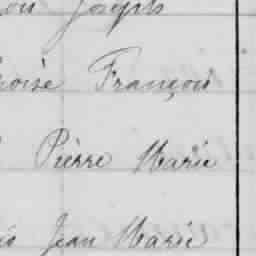 Joseph
François
Pierre Marie
Jean Marie